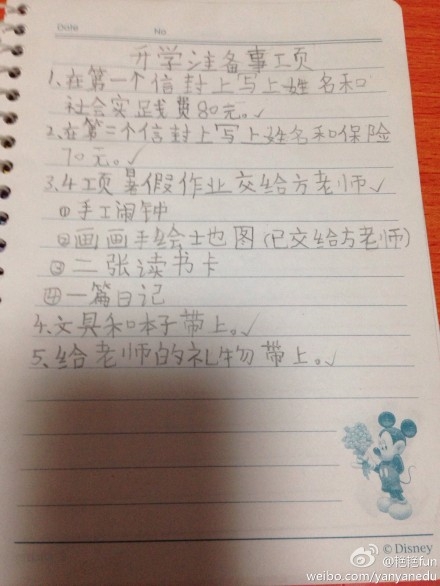 Date No
开学准备事项
1、在第一个信封上写上姓名和
社会实践费80元。✓
2、在第二个信封上写上姓名和保险
70元。✓
3、4项暑假作业交给方老师✓
①手工闹钟
②画画手绘地图(已交给方老师)
③二张读书卡
④一篇日记
4、文具和本子带上。✓
5、给老师的礼物带上。✓
© Disney
fun
weibo.com/yanyanedu